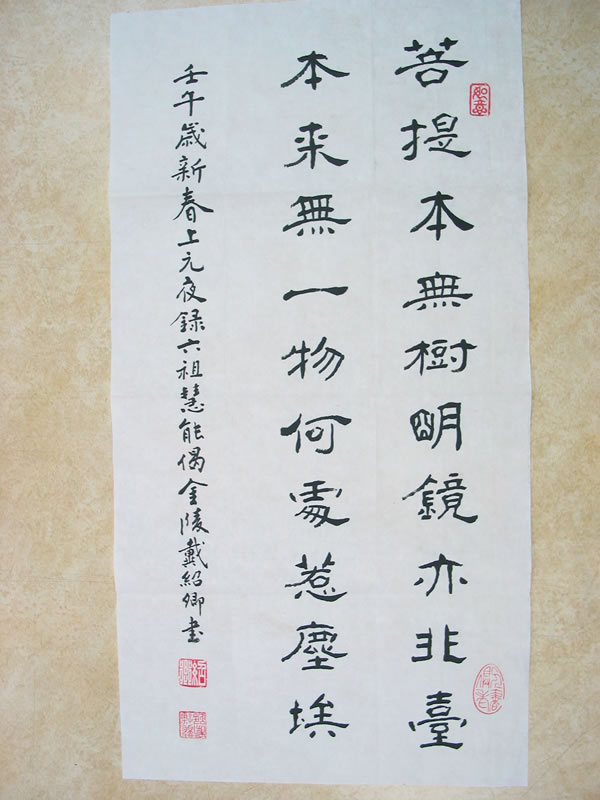 菩提本無樹明鏡亦非臺
本来無一物何處惹塵埃
壬午歲新春上元夜録六祖慧能偈金陵戴紹卿書
如意